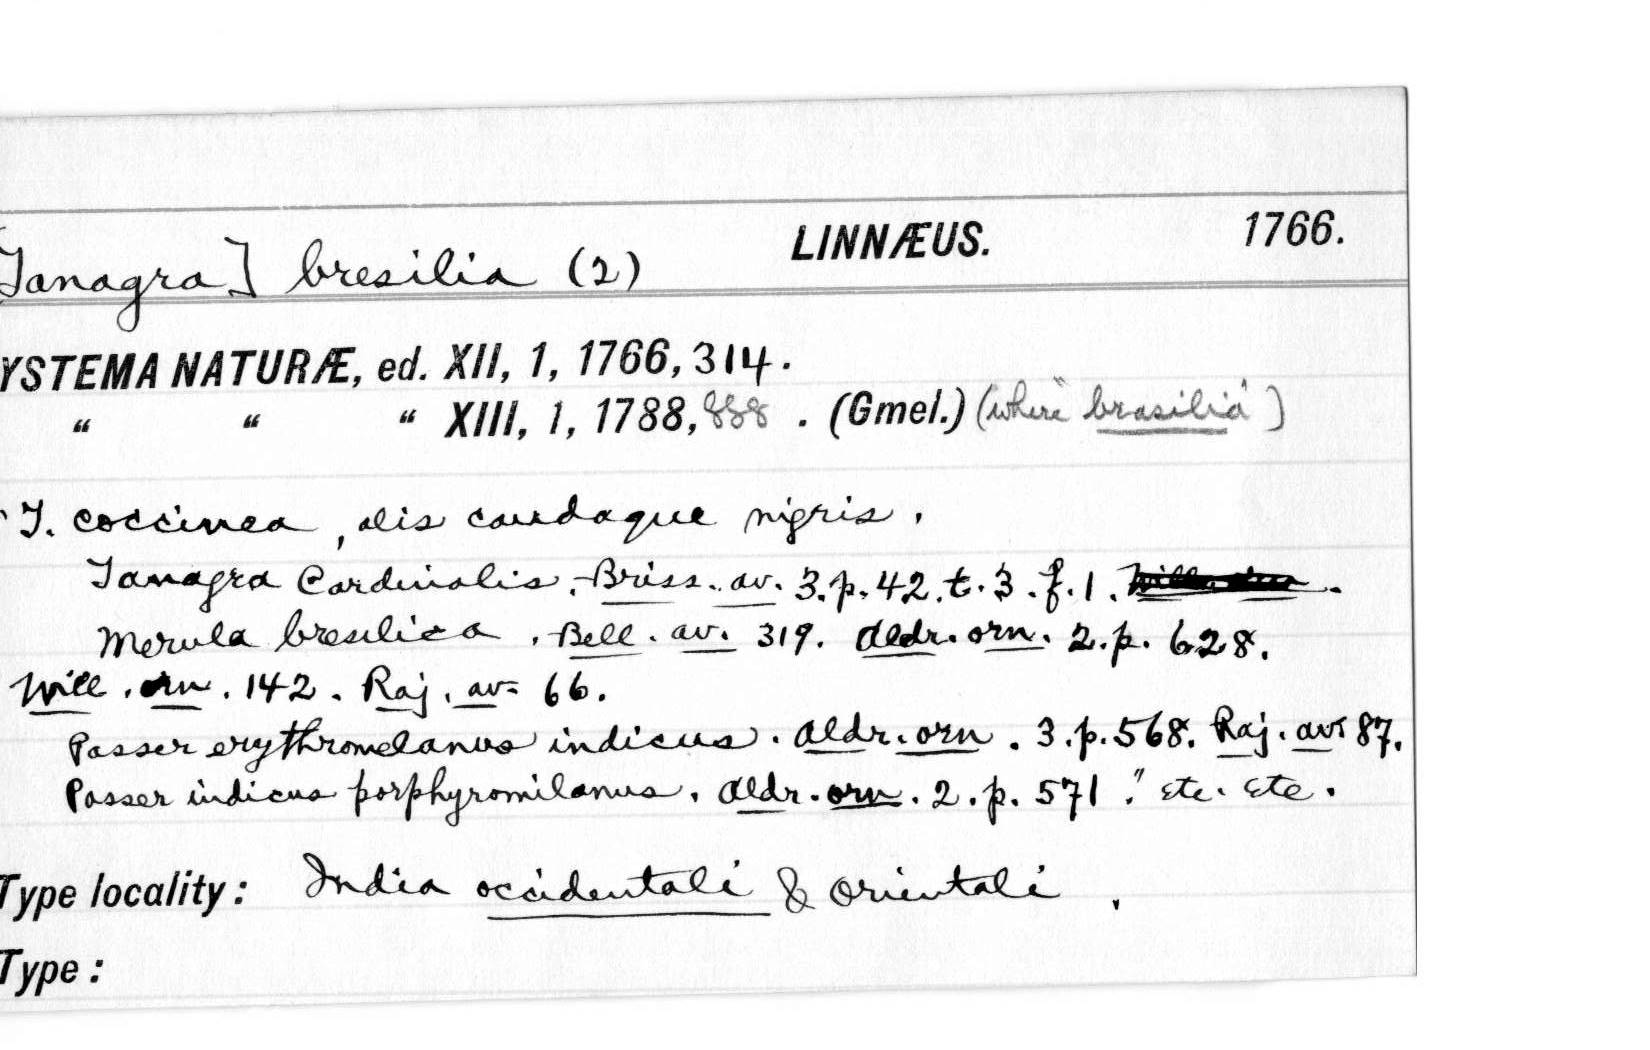 Tanagra] bresilia (2) LINNÆUS. 1766.
YSTEMA NATURÆ, ed. XII, 1, 1766, 314.
“ “ “ XIII, 1, 1788, 888. (Gmel.) (where "brasilia")
T. coccinea, alis caudaque nigris.
Tanagra Cardinalis. Briss. av. 3. p. 42. t. 3. f. 1.
Merula bresilica. Bell. av. 319. Aldr. orn. 2. p. 628.
Will. orn. 142. Raj. av. 66.
Passer erythromelanus indicus. Aldr. orn. 3. p. 568. Raj. av. 87.
Passer indicus porphyromilanus. Aldr. orn. 2. p. 571." etc. etc.
Type locality: India occidentali & orientali.
Type: